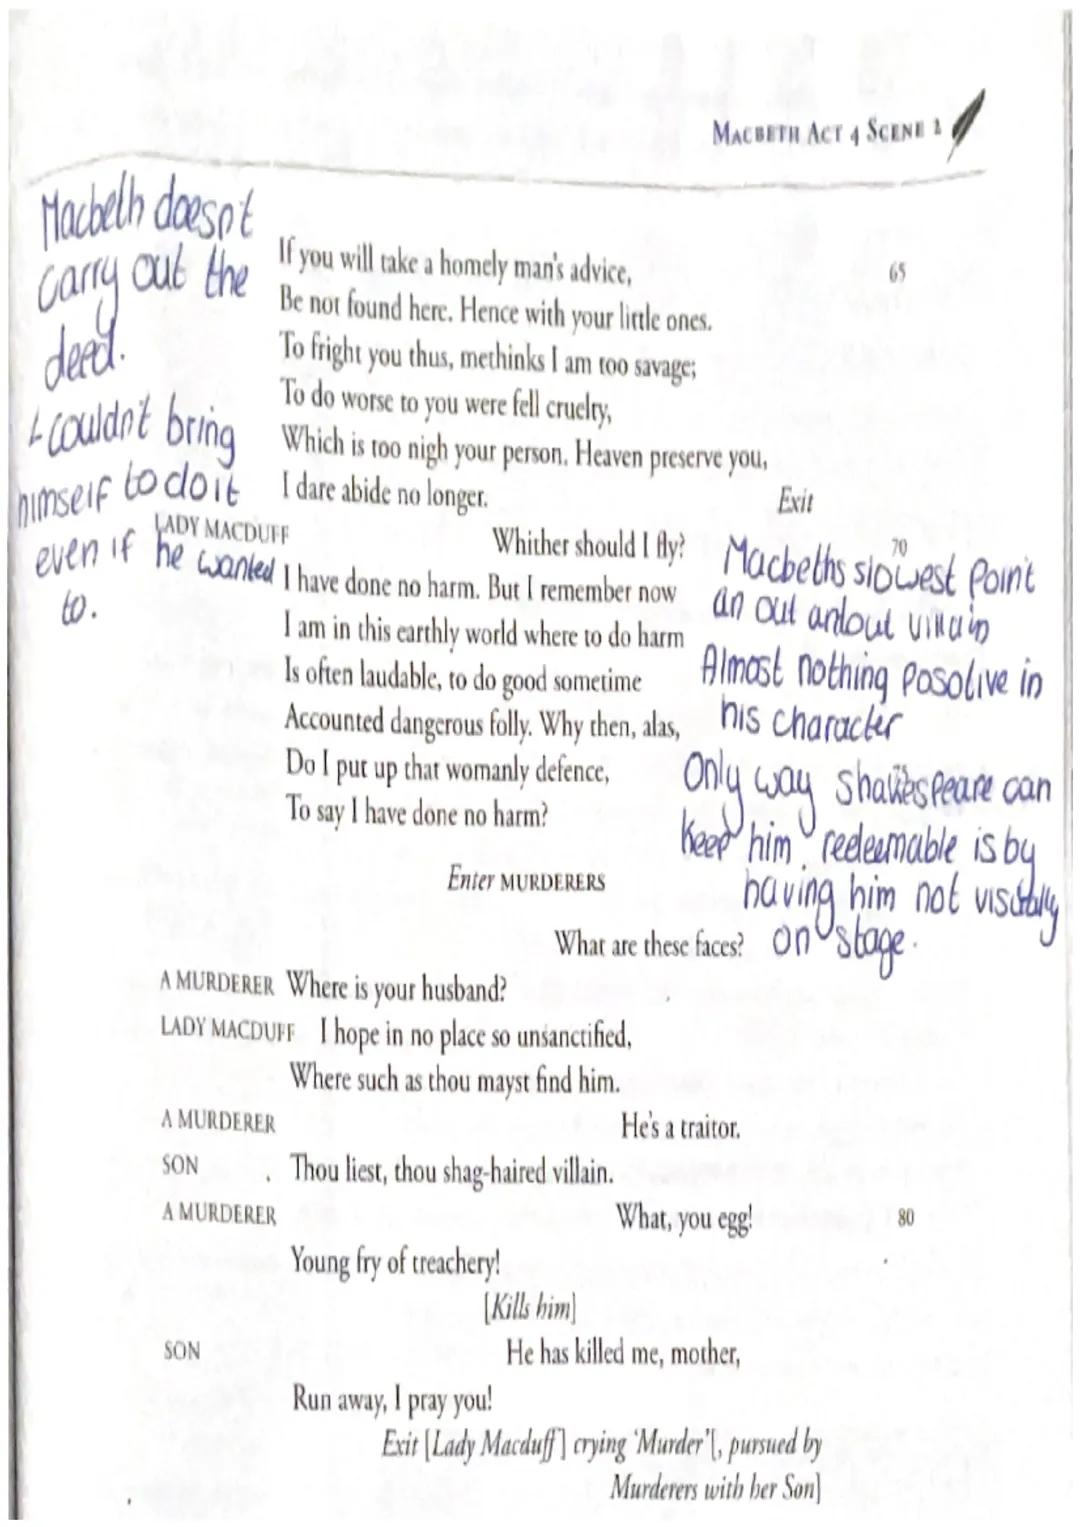 MACBETH ACT 4 SCENE 2
Macbeth doesnt
carry out the
deed.
↳ couldn't bring
himself to do it
even if he wanted
to.
If you will take a homely man's advice, 65
Be not found here. Hence with your little ones.
To fright you thus, methinks I am too savage;
To do worse to you were fell cruelty,
Which is too nigh your person. Heaven preserve you,
I dare abide no longer.
Exit
LADY MACDUFF Whither should I fly? 70
I have done no harm. But I remember now
I am in this earthly world where to do harm
Is often laudable, to do good sometime
Accounted dangerous folly. Why then, alas,
Do I put up that womanly defence, 75
To say I have done no harm?
Macbeths slowest point
an out anlout villain
Almost nothing posotive in
his character
Only way shakespeare can
keep him redeemable is by
having him not visually
on stage.
Enter MURDERERS
What are these faces?
A MURDERER Where is your husband?
LADY MACDUFF I hope in no place so unsanctified,
Where such as thou mayst find him.
A MURDERER He's a traitor.
SON Thou liest, thou shag-haired villain.
A MURDERER What, you egg! 80
Young fry of treachery!
[Kills him]
SON He has killed me, mother,
Run away, I pray you!
Exit [Lady Macduff] crying 'Murder'[, pursued by
Murderers with her Son]